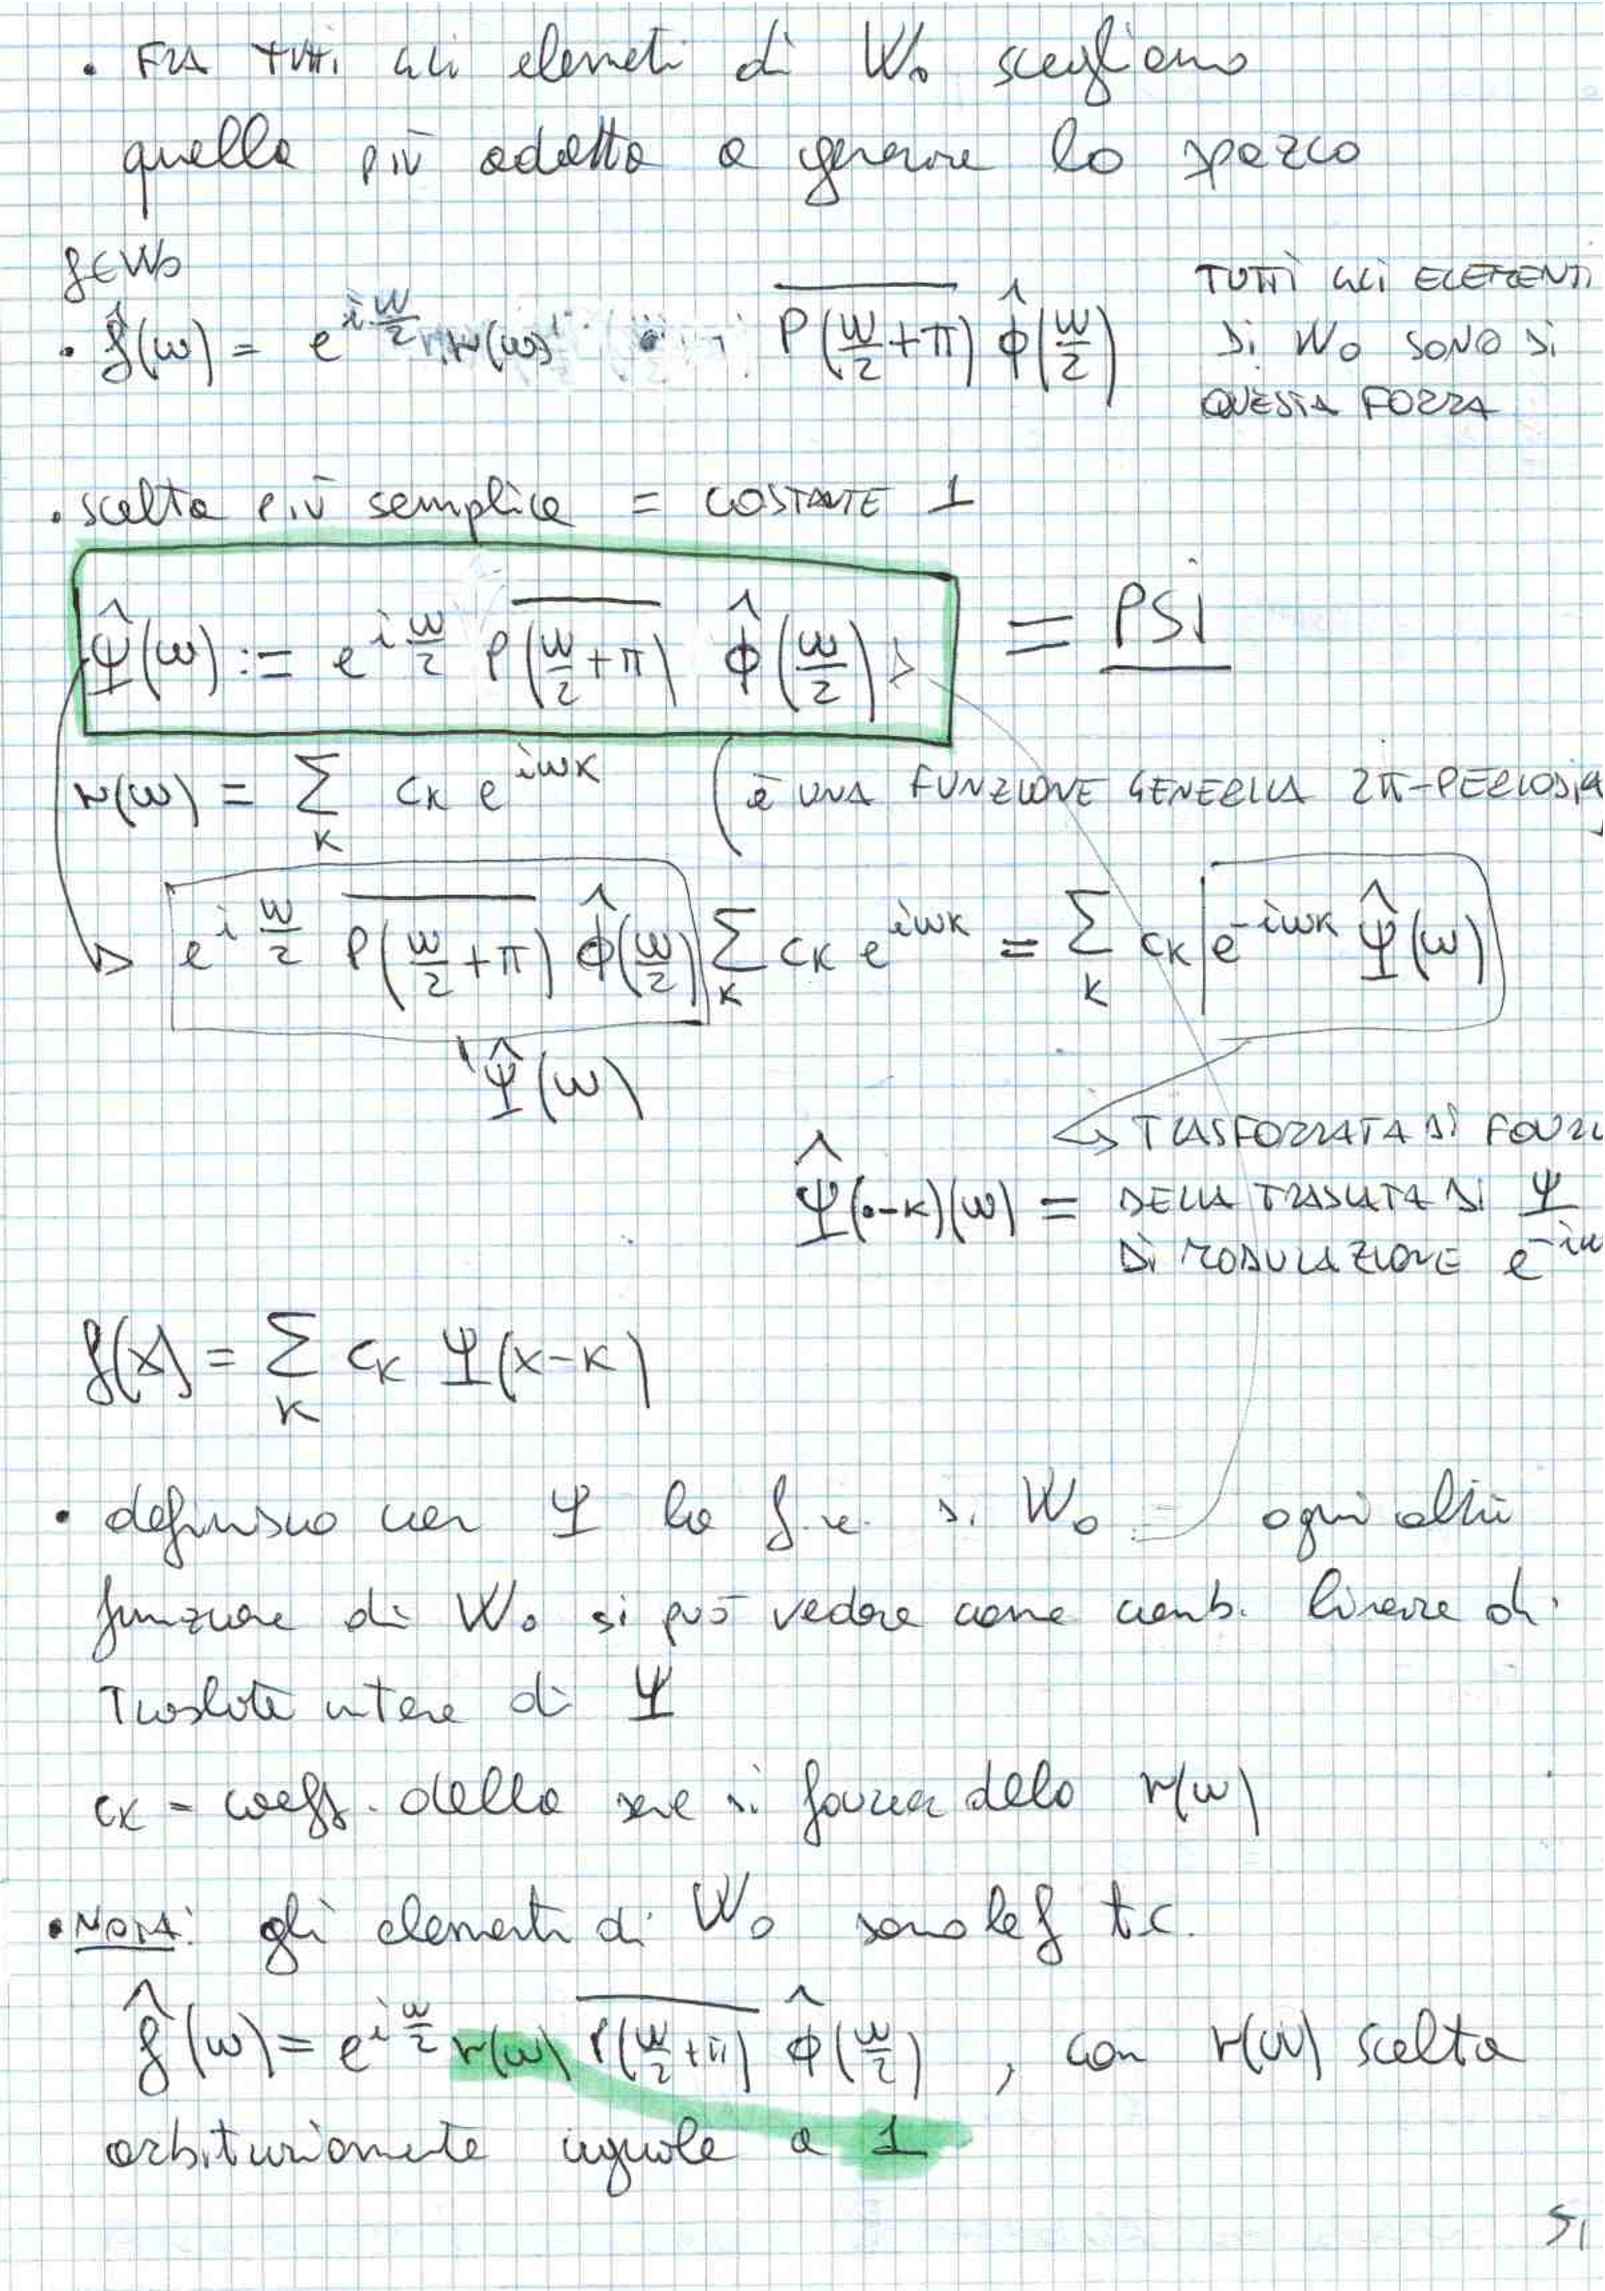 • FRA TUTTI GLI elementi di W₀ scegliamo
quella più adatta a generare lo spazio
f∈W₀
• f̂(ω) = e^{i ω/2} r(ω) \overline{P(ω/2+π)} φ̂(ω/2)
TUTTI GLI ELEMENTI
DI W₀ SONO DI
QUESTA FORMA
• scelta più semplice = COSTANTE 1
Ψ̂(ω) := e^{i ω/2} \overline{P(ω/2+π)} φ̂(ω/2) = PSI
r(ω) = Σ_K c_K e^{iωK} (è UNA FUNZIONE GENERICA 2π-PERIODICA
e^{i ω/2} \overline{P(ω/2+π)} φ̂(ω/2) Σ_K c_K e^{iωK} = Σ_K c_K e^{-iωK} Ψ̂(ω)
Ψ̂(ω)
↳ TRASFORMATA DI FOURI
Ψ̂(•-K)(ω) = DELLA TRASLATA DI Ψ
DI MODULAZIONE e^{-iω
f(x) = Σ_K c_K Ψ(x-K)
• definisco con Ψ la f.ne di W₀ = ogni altra
funzione di W₀ si può vedere come comb. lineare di
Traslate intere di Ψ
c_K = coeff. della serie di fourier della r(ω)
• NOTA: gli elementi di W₀ sono le f t.c.
f̂(ω) = e^{i ω/2} r(ω) \overline{P(ω/2+π)} φ̂(ω/2) , con r(ω) scelta
arbitrariamente uguale a 1
51